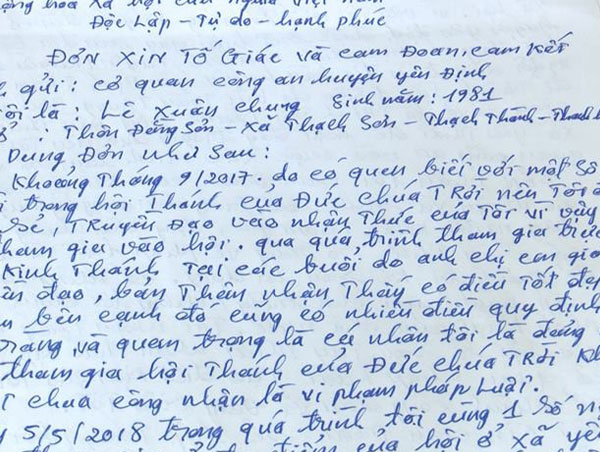 hòa xã hội của người Việt nam
Độc Lập - Tự do - hạnh phúc
ĐƠN XIN TỐ Giác và cam Đoan, cam kết
gửi: cơ quan công an huyện yên Định
là: Lê Xuân chung Sinh năm: 1981
: Thôn Đồng Sơn - xã Thạch Sơn - Thạch Thành - Thanh
Dung Đơn như Sau:
Khoảng Tháng 9/2017. do có quen biết với một Số
trong hội Thánh của Đức chúa TRời nên Tôi
Sẻ, TRuyền Đạo vào nhận Thức của Tôi vì vậy
tham gia vào hội. qua quá trình tham gia
Kinh Thánh Tại các buổi do anh chị em
đạo, bản Thân nhận Thấy có điều Tốt đẹp
bên cạnh đó cũng có nhiều điều quy định
và quan trọng là cá nhân tôi là đảng
tham gia hội Thánh của Đức chúa TRời
chưa công nhận là vi phạm pháp Luật.
5/5/2018 trong quá trình tôi cùng 1 số
của hội ở xã yên